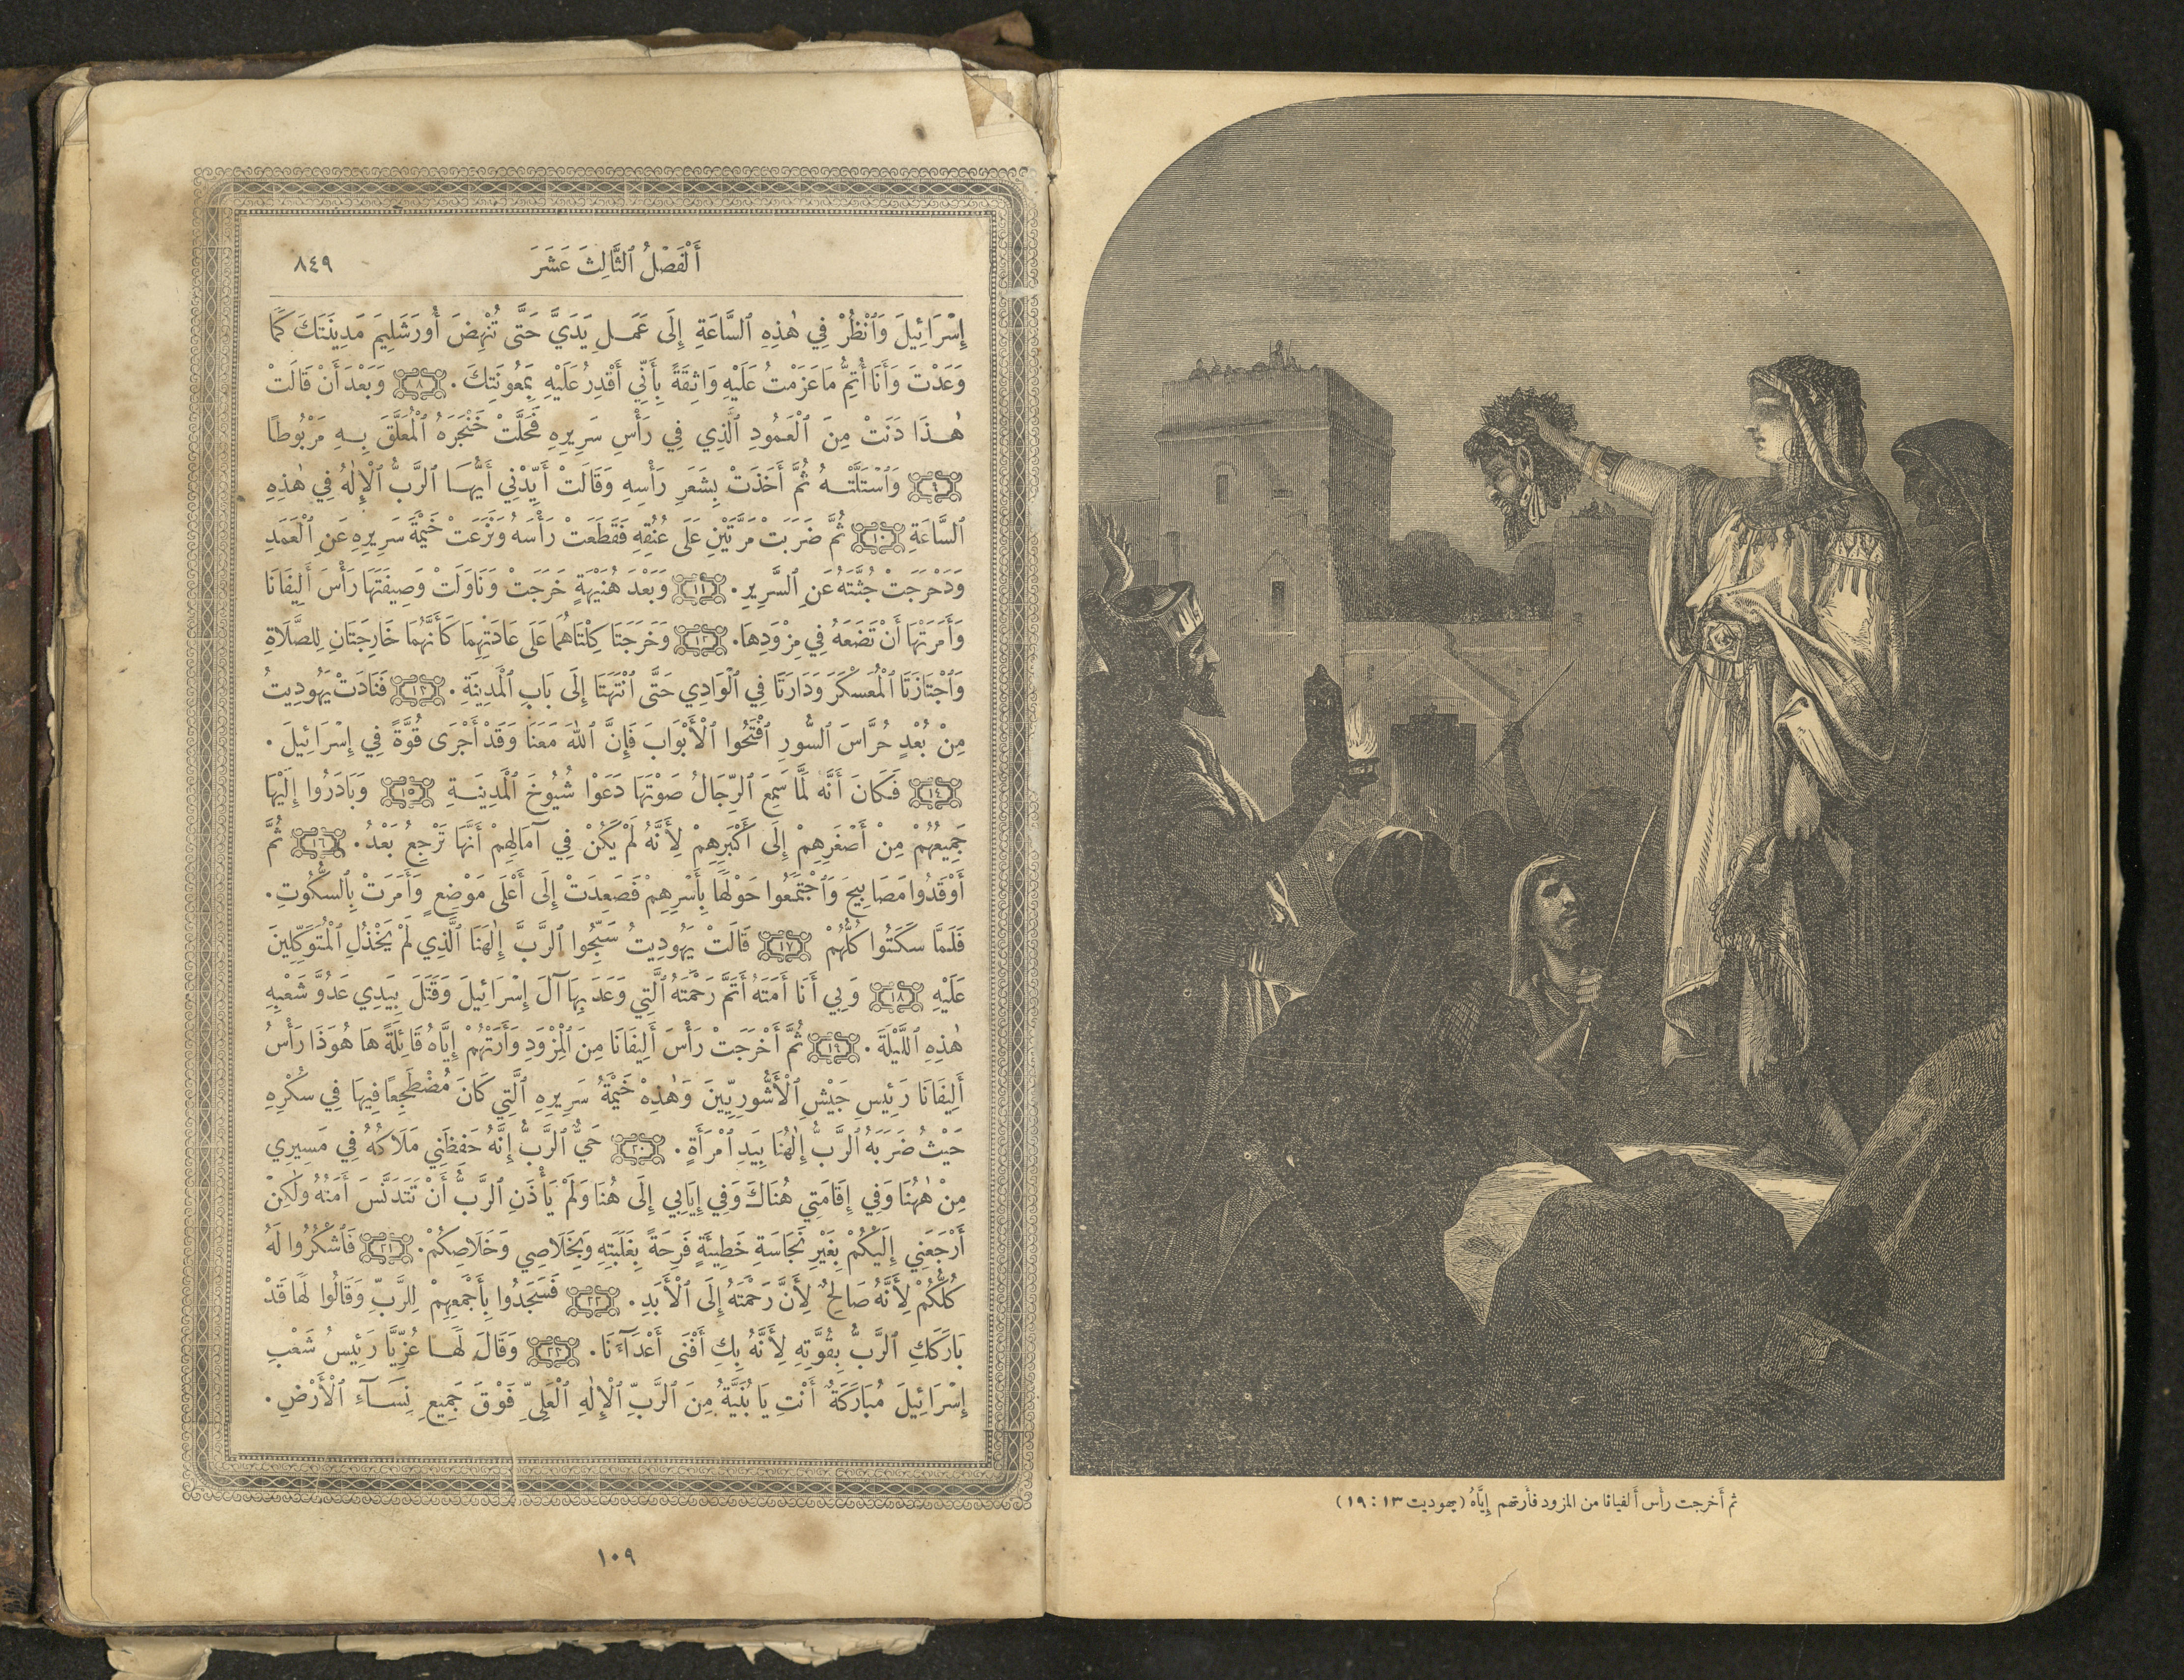 أَلْفَصْلُ ٱلثَّالِثَ عَشَرَ
٨٤٩
إِسْرَائِيلَ وَٱنْظُرْ فِي هٰذِهِ ٱلسَّاعَةِ إِلَى عَمَلِ يَدَيَّ حَتَّى تُنْهِضَ أُورَشَلِيمَ مَدِينَتَكَ كَمَا
وَعَدْتَ وَأَنَا أُتِمُّ مَا عَزَمْتُ عَلَيْهِ وَاثِقَةً بِأَنِّي أَقْدِرُ عَلَيْهِ بِمَعُونَتِكَ. ٨ وَبَعْدَ أَنْ قَالَتْ
هٰذَا دَنَتْ مِنَ ٱلْعَمُودِ ٱلَّذِي فِي رَأْسِ سَرِيرِهِ فَحَلَّتْ خَنْجَرَهُ ٱلْمُعَلَّقَ بِهِ مَرْبُوطًا
٩ وَٱسْتَلَّتْهُ ثُمَّ أَخَذَتْ بِشَعَرِ رَأْسِهِ وَقَالَتْ أَيِّدْنِي أَيُّهَا ٱلرَّبُّ ٱلْإِلٰهُ فِي هٰذِهِ
ٱلسَّاعَةِ ١٠ ثُمَّ ضَرَبَتْ مَرَّتَيْنِ عَلَى عُنُقِهِ فَقَطَعَتْ رَأْسَهُ وَنَزَعَتْ خَيْمَةَ سَرِيرِهِ عَنِ ٱلْعَمَدِ
وَدَحْرَجَتْ جُثَّتَهُ عَنِ ٱلسَّرِيرِ. ١١ وَبَعْدَ هُنَيْهَةٍ خَرَجَتْ وَنَاوَلَتْ وَصِيفَتَهَا رَأْسَ أَلِيفَانَا
وَأَمَرَتْهَا أَنْ تَضَعَهُ فِي مِزْوَدِهَا. ١٢ وَخَرَجَتَا كِلْتَاهُمَا عَلَى عَادَتِهِمَا كَأَنَّهُمَا خَارِجَتَانِ لِلصَّلَاةِ
وَٱجْتَازَتَا ٱلْمُعَسْكَرَ وَدَارَتَا فِي ٱلْوَادِي حَتَّى ٱنْتَهَتَا إِلَى بَابِ ٱلْمَدِينَةِ. ١٣ فَنَادَتْ يَهُودِيتُ
مِنْ بُعْدٍ حُرَّاسَ ٱلسُّورِ ٱفْتَحُوا ٱلْأَبْوَابَ فَإِنَّ ٱللهَ مَعَنَا وَقَدْ أَجْرَى قُوَّةً فِي إِسْرَائِيلَ.
١٤ فَكَانَ أَنَّهُ لَمَّا سَمِعَ ٱلرِّجَالُ صَوْتَهَا دَعَوْا شُيُوخَ ٱلْمَدِينَةِ ١٥ وَبَادَرُوا إِلَيْهَا
جَمِيعُهُمْ مِنْ أَصْغَرِهِمْ إِلَى أَكْبَرِهِمْ لِأَنَّهُ لَمْ يَكُنْ فِي آمَالِهِمْ أَنَّهَا تَرْجِعُ بَعْدُ. ١٦ ثُمَّ
أَوْقَدُوا مَصَابِيحَ وَٱجْتَمَعُوا حَوْلَهَا بِأَسْرِهِمْ فَصَعِدَتْ إِلَى أَعْلَى مَوْضِعٍ وَأَمَرَتْ بِٱلسُّكُوتِ.
فَلَمَّا سَكَتُوا كُلُّهُمْ ١٧ قَالَتْ يَهُودِيتُ سَبِّحُوا ٱلرَّبَّ إِلٰهَنَا ٱلَّذِي لَمْ يَخْذُلِ ٱلْمُتَوَكِّلِينَ
عَلَيْهِ ١٨ وَبِي أَنَا أَمَتَهُ أَتَمَّ رَحْمَتَهُ ٱلَّتِي وَعَدَ بِهَا آلَ إِسْرَائِيلَ وَقَتَلَ بِيَدِي عَدُوَّ شَعْبِهِ
هٰذِهِ ٱللَّيْلَةَ. ١٩ ثُمَّ أَخْرَجَتْ رَأْسَ أَلِيفَانَا مِنَ ٱلْمِزْوَدِ وَأَرَتْهُمْ إِيَّاهُ قَائِلَةً هَا هُوَذَا رَأْسُ
أَلِيفَانَا رَئِيسِ جَيْشِ ٱلْأَشُّورِيِّينَ وَهٰذِهْ خَيْمَةُ سَرِيرِهِ ٱلَّتِي كَانَ مُضْطَجِعًا فِيهَا فِي سُكْرِهِ
حَيْثُ ضَرَبَهُ ٱلرَّبُّ إِلٰهُنَا بِيَدِ ٱمْرَأَةٍ. ٢٠ حَيٌّ ٱلرَّبُّ إِنَّهُ حَفِظَنِي مَلَاكُهُ فِي مَسِيرِي
مِنْ هٰهُنَا وَفِي إِقَامَتِي هُنَاكَ وَفِي إِيَابِي إِلَى هُنَا وَلَمْ يَأْذَنِ ٱلرَّبُّ أَنْ تَتَدَنَّسَ أَمَتُهُ وَلٰكِنْ
أَرْجَعَنِي إِلَيْكُمْ بِغَيْرِ نَجَاسَةِ خَطِيئَةٍ فَرِحَةً بِغَلَبَتِهِ وَبِخَلَاصِي وَخَلَاصِكُمْ. ٢١ فَٱشْكُرُوا لَهُ
كُلُّكُمْ لِأَنَّهُ صَالِحٌ لِأَنَّ رَحْمَتَهُ إِلَى ٱلْأَبَدِ. ٢٢ فَسَجَدُوا بِأَجْمَعِهِمْ لِلرَّبِّ وَقَالُوا لَهَا قَدْ
بَارَكَكِ ٱلرَّبُّ بِقُوَّتِهِ لِأَنَّهُ بِكِ أَفْنَى أَعْدَآءَنَا. ٢٣ وَقَالَ لَهَا عُزِّيَّا رَئِيسُ شَعْبِ
إِسْرَائِيلَ مُبَارَكَةٌ أَنْتِ يَا بُنَيَّةُ مِنَ ٱلرَّبِّ ٱلْإِلٰهِ ٱلْعَلِيِّ فَوْقَ جَمِيعِ نِسَآءِ ٱلْأَرْضِ.
١٠٩
ثم أَخرجت رأْس أَلفيانا من المزود فأَرتهم إِيَّاهُ (يهوديت ١٣ : ١٩)